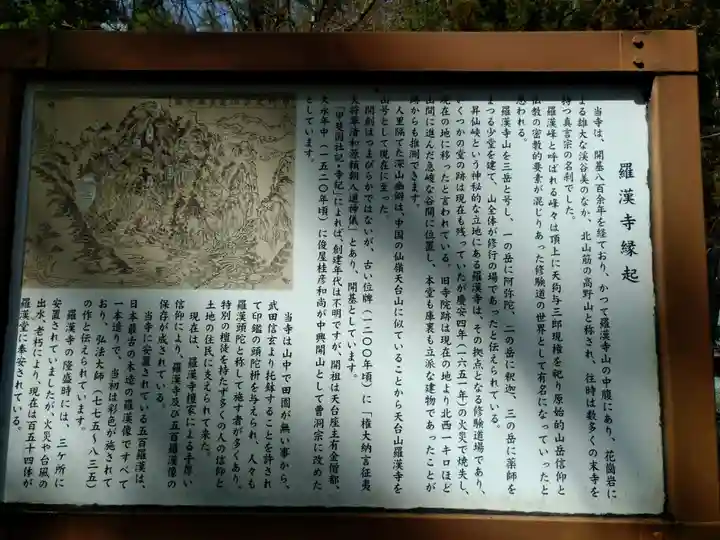 羅漢寺縁起
当寺は、開基八百余年を経ており、かつて羅漢寺山の中腹にあり、花崗岩に
よる雄大な渓谷美のなか、北山筋の高野山と称され、往時は数多くの末寺を
持つ真言宗の名刹でした。
羅漢峰と呼ばれる峰々は頂上に天狗与三郎現権を祀り原始的山岳信仰と
仏教の密教的要素が混じりあった修験道の世界として有名になっていったと
思われる。
羅漢寺山を三岳と号し、一の岳に阿弥陀、二の岳に釈迦、三の岳に薬師を
まつる少堂を建て、山全体が修行の場であったと伝えられている。
昇仙峡という神秘的な立地にある羅漢寺は、その拠点となる修験道場であり、
いくつかの堂の跡は現在も残っていたが慶安四年(一六五一年)の火災で焼失し、
現在の地に移ったと言われている。旧寺院跡は現在の地より北西一キロほど
山間に進んだ急峻な谷間に位置し、本堂も庫裏も立派な建物であったことが
跡からも推測できます。
人里隔てた深山幽僻は、中国の仙嶺天台山に似ていることから天台山羅漢寺を
山号として現在に至った。
開創はつまびらかではないが、古い位牌(一二〇〇年頃)に「権大納言征夷
大将軍清和源頼朝入道神儀」とあり、開基としています。
「甲斐国社記・寺記」によれば、創建年代は不明ですが、開祖は天台座主有金僧都、
大永年中(一五二〇年頃)に俊屋桂彦和尚が中興開山として曹洞宗に改めた
としています。
当寺は山中で田園が無い事から、
武田信玄より托鉢することを許され
て印鑑の頭陀枡を与えられ、人々も
羅漢頭陀と称して施す者が多くあり、
特別の檀徒を持たず多くの人の信仰と
土地の住民に支えられて来た。
現在は、羅漢寺檀家による手厚い
信仰により、羅漢寺及び五百羅漢像の
保存が成されている。
当寺に安置されている五百羅漢は、
日本最古の木造の羅漢像ですべて
一本造りで、当初は彩色が施されて
おり、弘法大師(七七五〜八三五)
の作と伝えられています。
羅漢寺の隆盛時には、三ヶ所に
安置されていましたが、火災や台風の
出水、老朽により、現在は百五十四体が
羅漢堂に奉安されている。